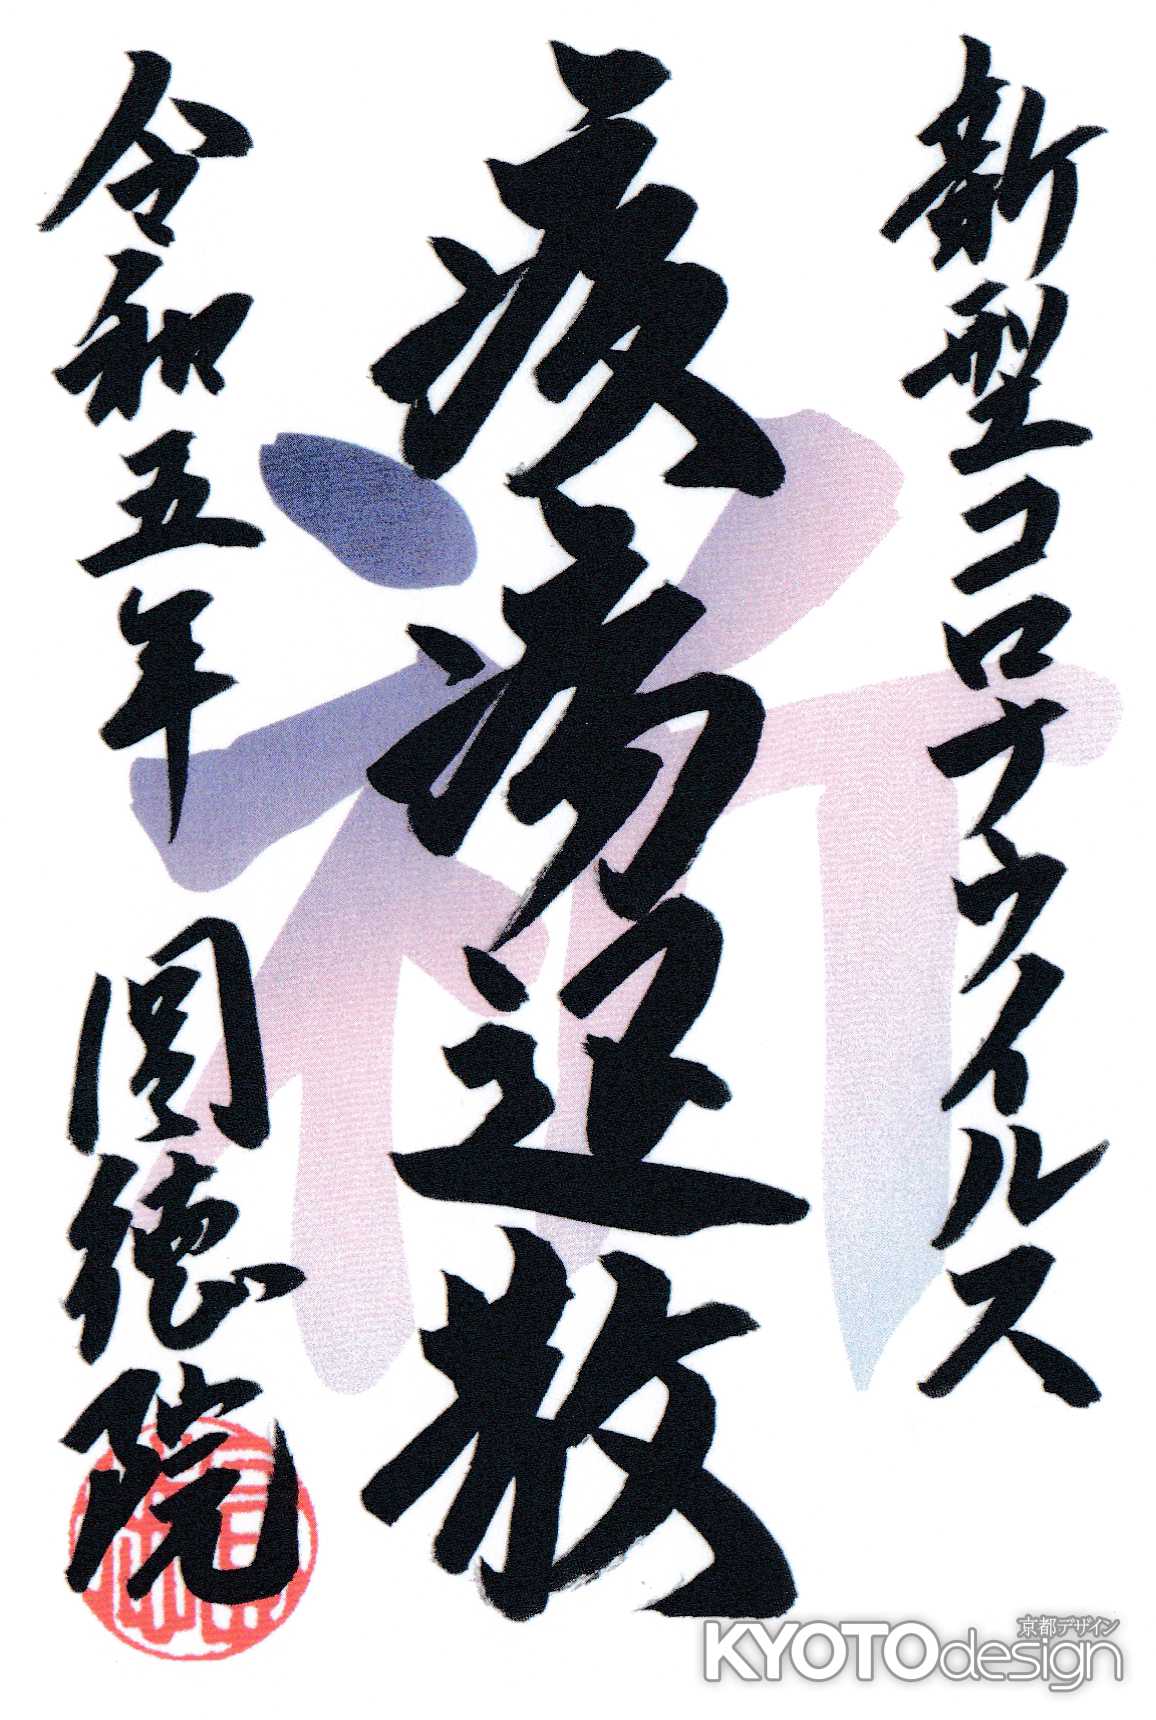 新型コロナウイルス
疫病退散
令和五年 圓徳院
祈
京都デザイン
KYOTOdesign